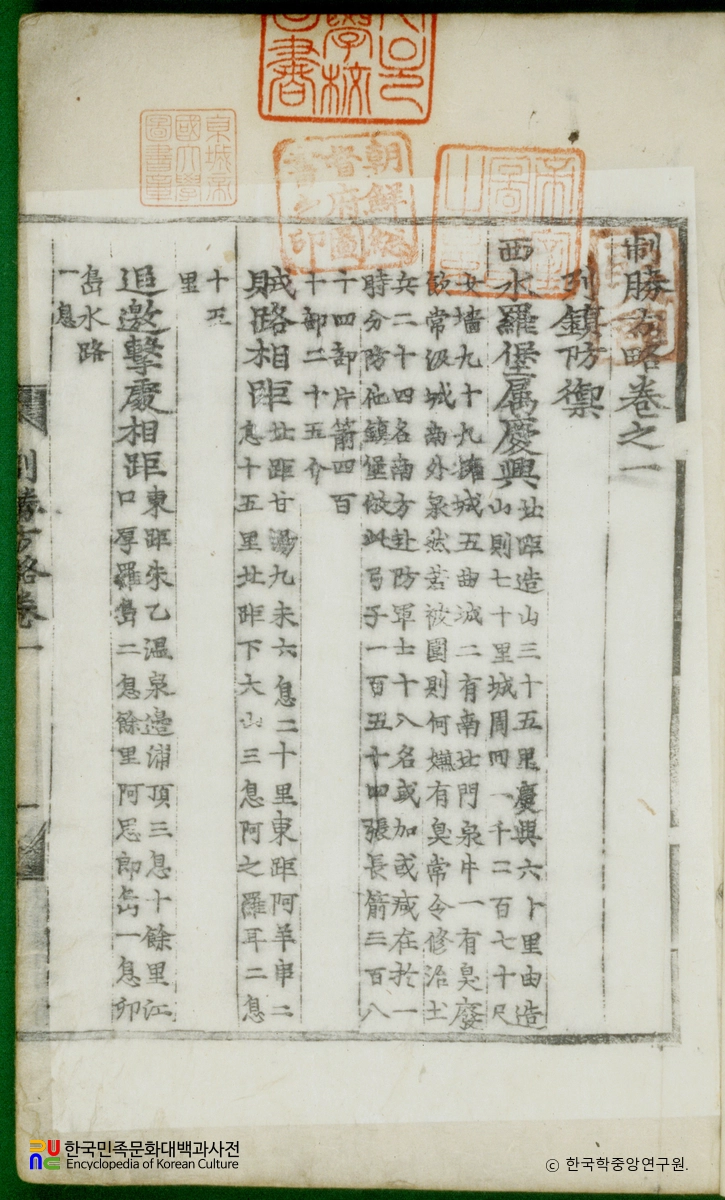 制勝方略卷之一
列鎭防禦
西水羅堡屬慶興
北距造山三十五里慶興六十里由造
山則七十里城周回一千二百七十尺
女墻九十九擁城五曲城二有南北門泉井一有臭廢
常汲城南外泉然若被圍則何嫌有臭常令修治土
兵二十四名南方赴防軍士十八名或加或减在於一
時分防他鎭堡倣此弓子一百五十四張長箭三百八
十四部片箭四百
十部二十五介
賊路相距
北距甘湯九未六息二十里東距阿羊串二
息十五里北距下大山三息阿之羅耳二息
十五
里
追邀擊處相距
東距朱乙温泉邊浦頂三息十餘里江
口厚羅島二息餘里阿思郎岩一息卯
島水路
一息
制勝方略卷一
一
朝鮮總督府圖書之印
京城帝國大學圖書章
한국민족문화대백과사전
Encyclopedia of Korean Culture
© 한국학중앙연구원.